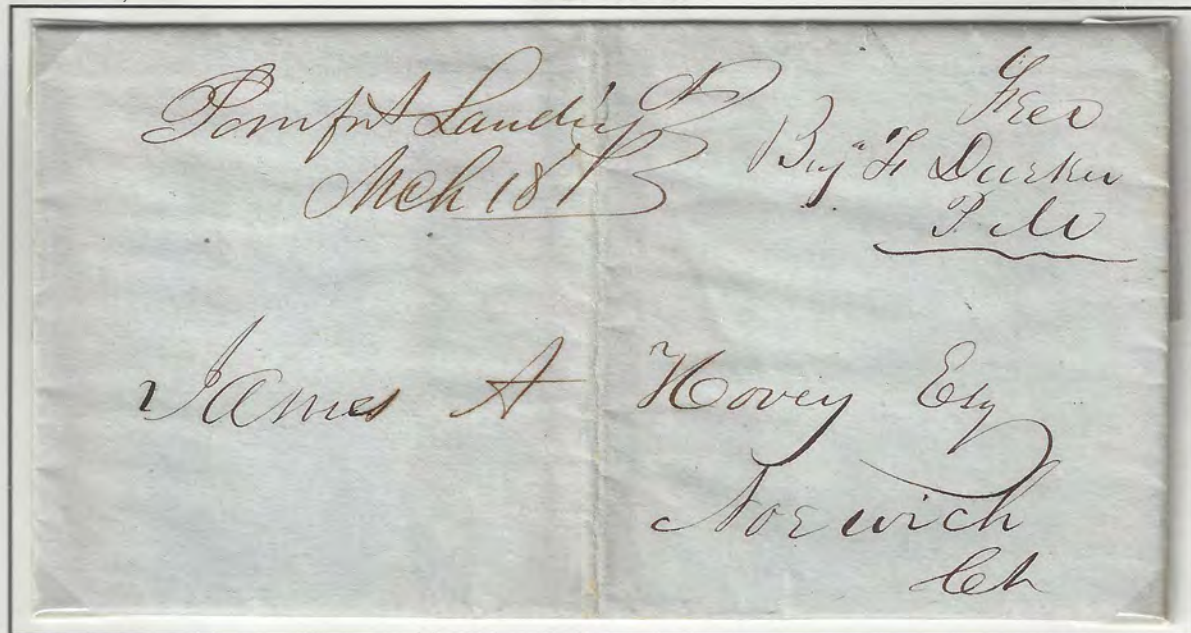 Pomfret Landing Ct
Mch 18
Free
Benj F Durkee
P. M
James A Hovey Esq
Norwich
Ct